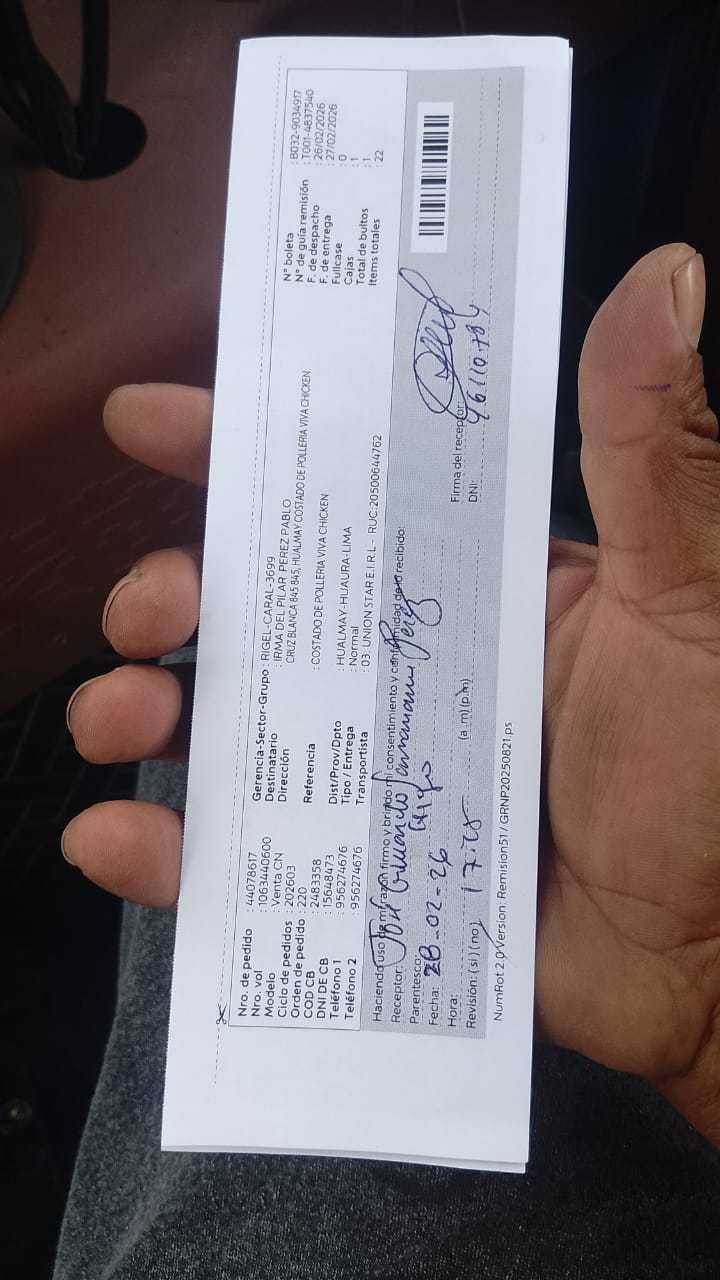 Nro. de pedido : 44078617
Nro. vol : 1063440600
Modelo : Venta CN
Ciclo de pedidos : 202603
Orden de pedido : 220
COD CB : 2483358
DNI DE CB : 15648473
Teléfono 1 : 956274676
Teléfono 2 : 956274676
Gerencia-Sector-Grupo : RIGEL-CARAL-3699
Destinatario : IRMA DEL PILAR PEREZ PABLO
Dirección : CRUZ BLANCA 845 845, HUALMAY COSTADO DE POLLERIA VIVA CHICKEN
Referencia : COSTADO DE POLLERIA VIVA CHICKEN
Dist/Prov/Dpto : HUALMAY-HUAURA-LIMA
Tipo / Entrega : Normal
Transportista : 03. UNION STAR E.I.R.L - RUC:20500644762
N° boleta : B032-9034917
N° de guía remisión : T001-4837540
F. de despacho : 26/02/2026
F. de entrega : 27/02/2026
Fullcase : 0
Cajas : 1
Total de bultos : 1
Items totales : 22
Haciendo uso de mi razón firmo y brindo mi consentimiento y conformidad de lo recibido:
Receptor: José Perez
Parentesco: Hijo
Fecha: 28-02-26
Hora: 17:25 (a.m)(p.m)
Revisión: (si) (no)
Firma del receptor:
DNI: 46110784
NumRot 2.0 Version: Remision51 / GRNP20250821.ps